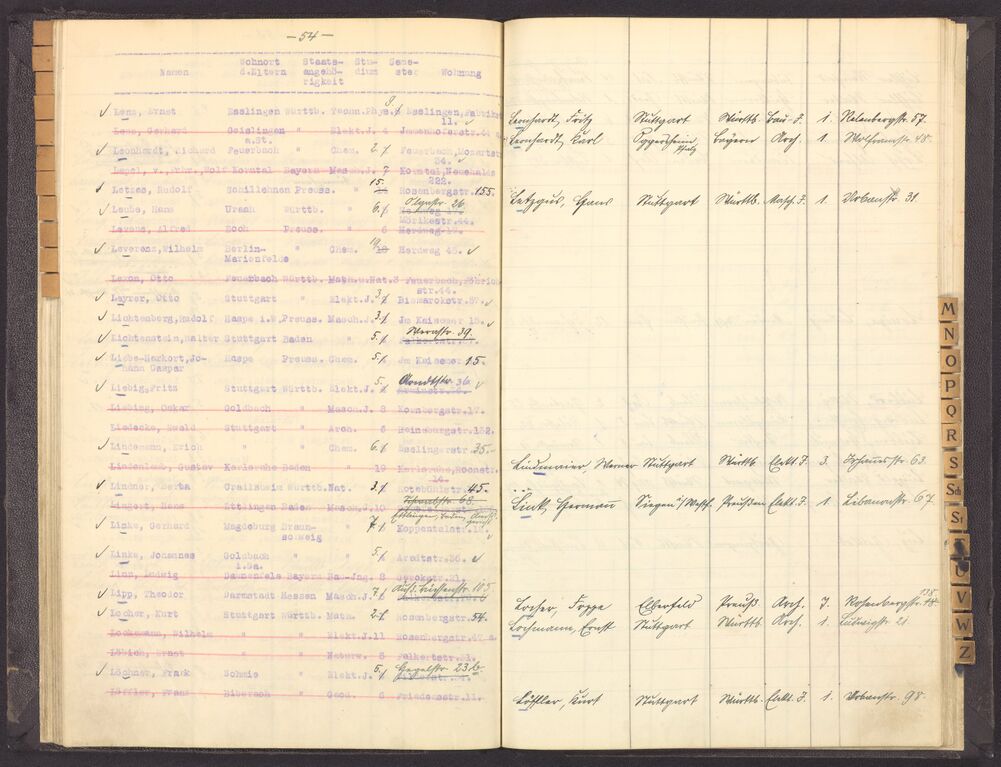 — 54 —
Namen Wohnort d.Eltern Staatsangehö-rigkeit Stu-dium Seme-ster Wohnung
Lenz, Ernst Esslingen Württb. Techn.Phys. 9. Esslingen,Fabrik
11.
Lenz, Gerhard Geislingen " Elekt.J. 4 Jamenhoferstr.44
a.St.
Leonhardt, Richard Feuerbach " Chem. 2. Feuerbach,Mozartstr
34.
Wolf Korntal Bayern Masch.J. 7 Korntal,
222.
Letzes, Rudolf Schillehnen Preuss. " 15. Rosenbergstr.155
Olgastr. 26.
Leube, Hans Urach Württb. " 6.
Mörikestr.44.
Levaus, Alfred Preuss. " 6 Herdweg 19.
Leverenz,Wilhelm Berlin-Marienfelde " Chem. 19 Herdweg 46.
Lexon, Otto Feuerbach Württb. Math.u.Nat. 3 Feuerbach,
str.44.
Leyrer, Otto Stuttgart " Elekt.J. 3. Bismarckstr.57.
Lichtenberg,Rudolf Haspe i.W. Preuss. Masch.J. 3. Jm Kaisemer 15.
Lichtenstein,Walter Stuttgart Baden " 5. Werastr. 39.
Liebe-Harkort,Jo-hann Caspar Haspe Preuss. Chem. 5. Jm Kaisemer 15.
Liebig,Fritz Stuttgart Württb. Elekt.J. 5. Arndtstr. 36
Liebing, Oskar Goldbach " Masch.J. 8 Kornbergstr.17.
Liedecke, Ewald Stuttgart " Arch. 6 Reinsburgstr.132.
Lindemann, Erich " " Chem. 6. Esslingerstr. 35.
Lindenlaub, Gustav Karlsruhe Baden " 19 Karlsruhe,Roonstr.
14.
Lindner, Berta Crailsheim Württb. Nat. 3. Rotebühlstr. 45.
Lingert, Hans Ettlingen Baden Masch.J. 10
Linke, Gerhard Magdeburg Braun-schweig " 7. Koppentalstr.12.
Linke, Johannes Goldbach i.Sa. " " 5. Arndtstr.36.
Linn, Ludwig Dannenfels Bayern Bau-Jng. 8 Gerokstr.21.
Lipp, Theodor Darmstadt Hessen Masch.J. 7. 105
Locher, Kurt Stuttgart Württb. Math. 2. Rosenbergstr. 54.
Lochmann, Wilhelm " " Elekt.J. 11 Rosenbergstr.47.a
Löbich, Ernst " " Naturw. 5 Falkertstr.31.
Löchner, Frank Schmie " Elekt.J. 5. Hegelstr. 23 b.
Löffler, Franz Biberach " Geod. 6 Friedensstr.11.
Leonhardt, Fritz Stuttgart Württb. Bau-J. 1. Relenbergstr. 57.
Leonhardt, Karl Oggersheim Pfalz Bayern Arch. 1. Wolframstr. 48.
Letzgus, Hans Stuttgart Württb. Masch.J. 1. Urbanstr. 31.
Lindmaier, Werner Stuttgart Württb. Elekt.J. 3. Johannesstr. 63.
Link, Hermann Siegen i/Westf. Preußen Elekt.J. 1. Libanonstr. 67.
Locher, Elberfeld Preuß. Arch. 7. Rosenbergstr. 118
Lochmann, Ernst Stuttgart Württb. Arch. 1. Ludwigstr. 21
Löffler, Kurt Stuttgart Württb. Elekt.J. 1. Urbanstr. 98.
M
N
O
P
Q
R
S
Sch
St
T
U
V
W
Z